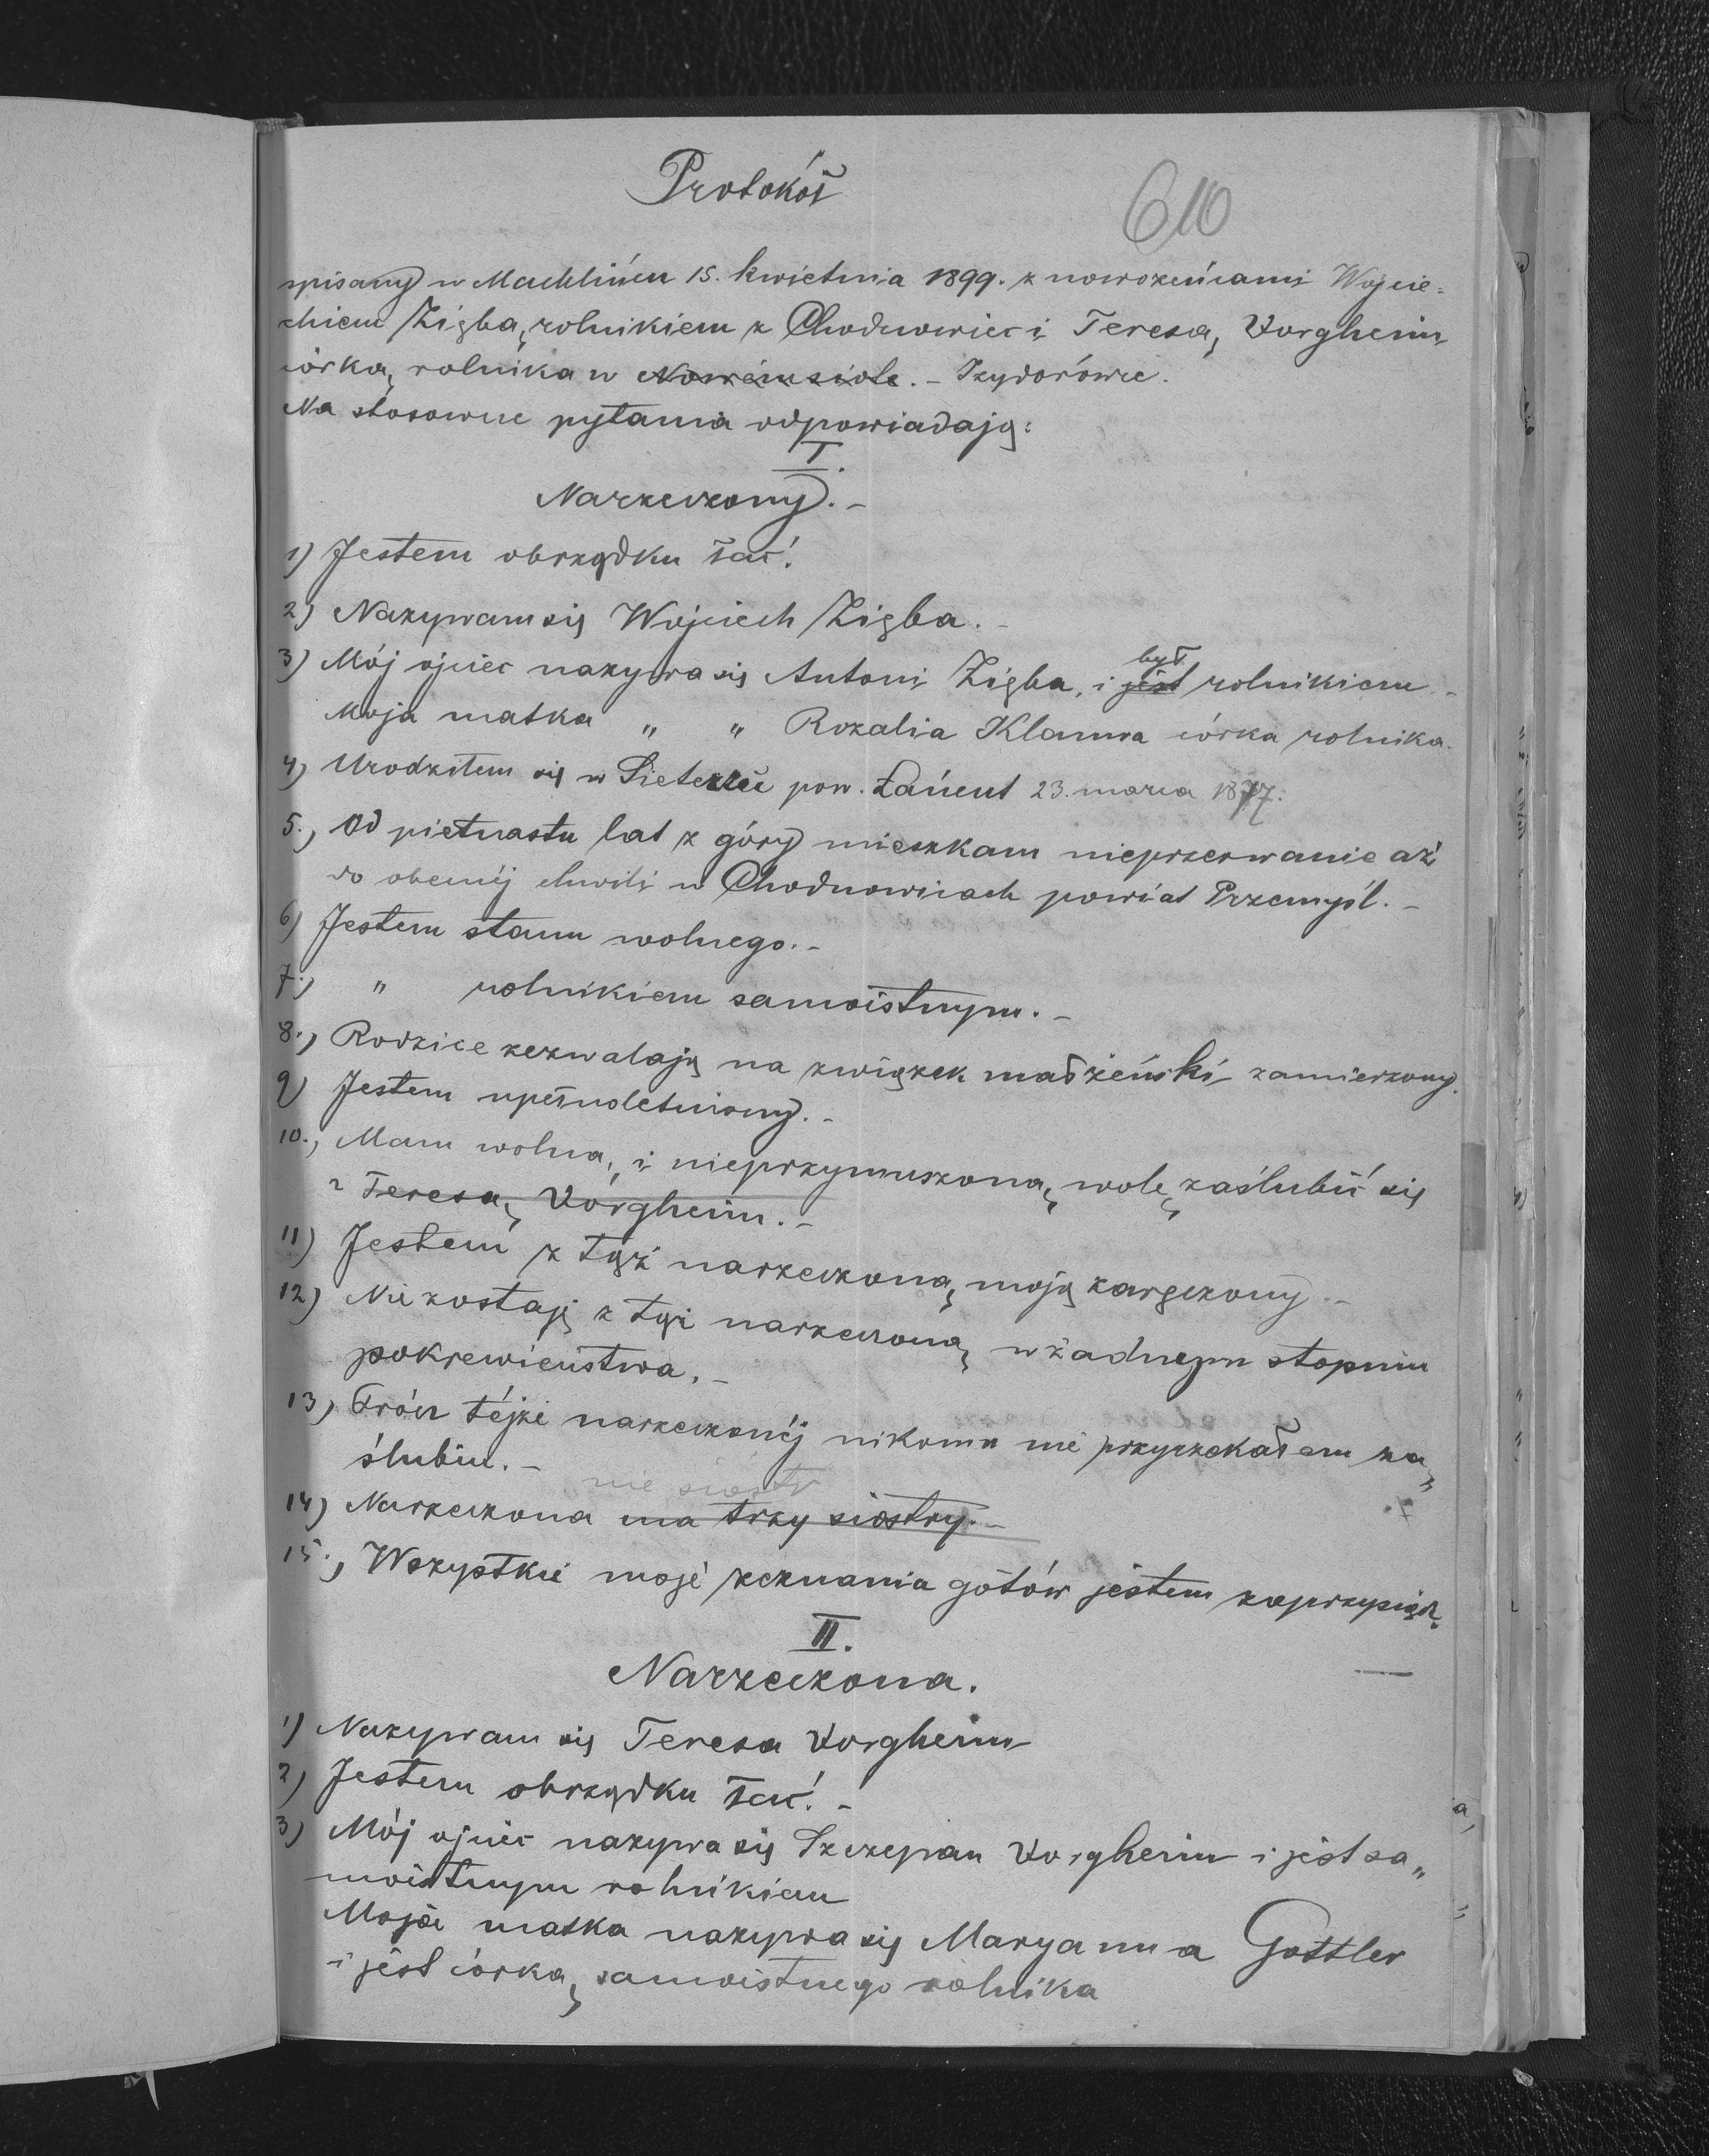 Protokół
610
spisany w Machlińcu 15. kwietnia 1899. z nowożeńcami Wojcie=
chiem Zięba, rolnikiem z Chodnowiec i Teresą Vorgheim
córką rolnika w Nowemsiole. - Izydorówce.
Na stosowne pytania odpowiadają:
I.
Narzeczony. -
1) Jestem obrządku łać.
2) Nazywam się Wojciech Zięba. -
był
3) Mój ojciec nazywa się Antoni Zięba, i jest rolnikiem -
Moja matka " " Rozalia Klamra córka rolnika.
4) Urodziłem się w pow. Łańcut 23. marca 1877.
5., Od pietnastu lat z góry mieszkam nieprzerwanie aż
do obecnéj chwili w Chodnowicach powiat Przemyśl. -
6) Jestem stanu wolnego. -
7.) " rolnikiem samoistnym. -
8., Rodzice zezwalają na związek małżeński zamierzony.
9) Jestem upełnoletniony. -
10., Mam wolną i nieprzymuszoną wolę zaślubić się
z Teresą Vorgheim. -
11) Jestem z tąż narzeczoną moją zaręczony. -
12) Nie zostaję z tąż narzeczoną w żadnym stopniu
pokrewieństwa. -
13) Prócz téjże narzeczonéj nikomu nie przyrzekałem za„
ślubin. -
nie siostr
14) Narzeczona ma trzy siostry. -
15., Wszystkie moje zeznania gotów jestem zaprzysiądz.
II.
Narzeczona.
1) Nazywam się Teresa Vorgheim
2) Jestem obrządku łać. -
3) Mój ojciec nazywa się Szczepan Vorgheim i jest sa„
moistnym rolnikiem
Moja matka nazywa się Maryanna Gottler
i jest córką samoistnego rolnika